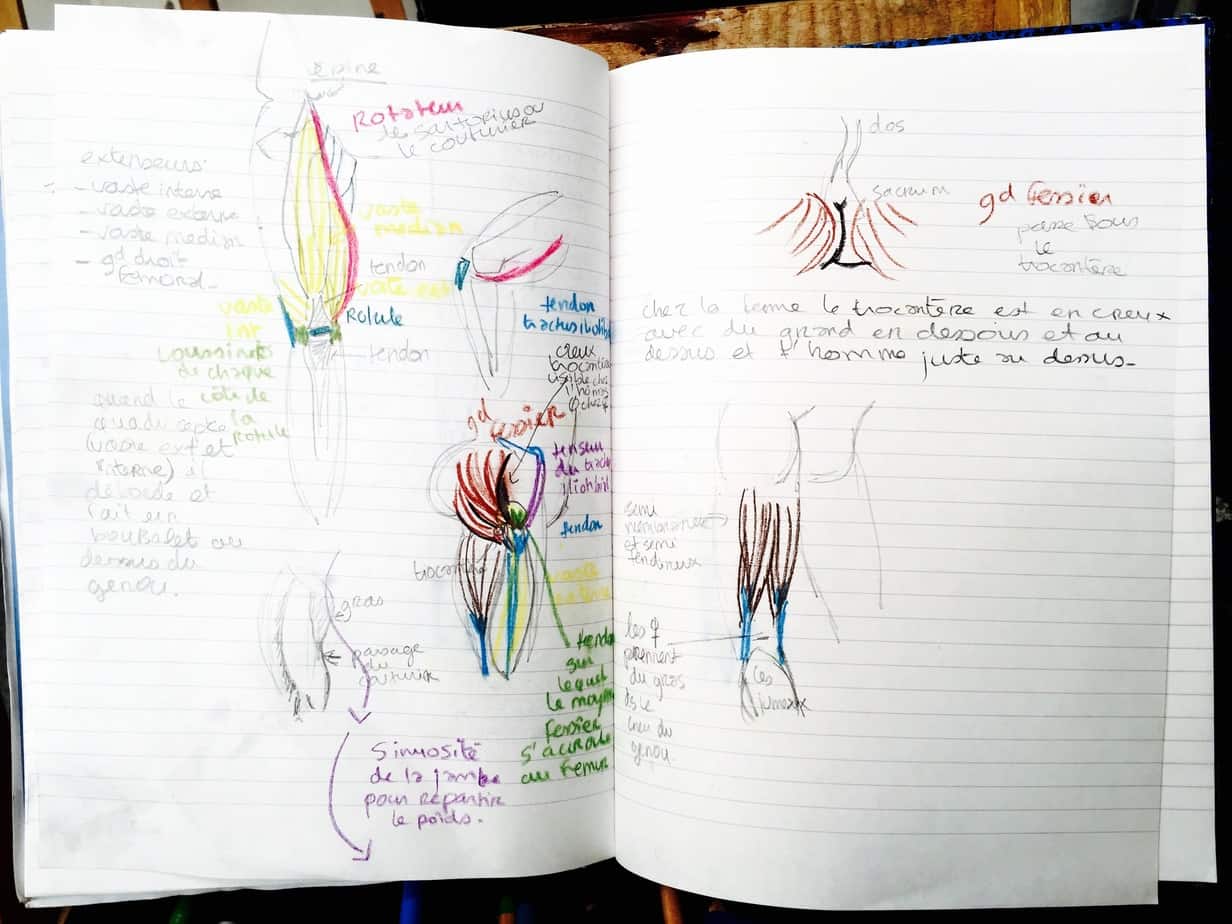 épine
Rotateur
le sartorius ou
le couturier
extenseurs:
- vaste interne
- vaste externe
- vaste median
- gd droit
femoral -
vaste
median
tendon
vaste ext
vaste
int
Rotule
coussinets
de chaque
côté de
la
rotule
tendon
quand le
(vaste ext et
interne) il
déborde et
fait un
au
dessus du
genou.
tendon
creux
gd
fessier
tenseur
du
tendon
vaste
gras
passage
du
couturier
tendon
sur
lequel
le moyen
fessier
s'accroche
au femur
Sinuosité
de la jambe
pour répartir
le poids.
dos
sacrum
gd fessier
passe sous
le
trocantère
chez la femme le trocantère est en creux
avec du grand en dessous et au
dessus et l'homme juste au dessus-
semi
et semi
tendineux
les ♀
prennent
du gras
ds le
creu du
genou.
les
jumeaux